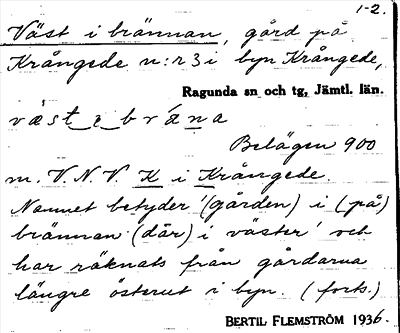 1-2.
Väst i brännan, gård på
Krångede n:r 3 i byn Krångede,
Ragunda sn och tg, Jämtl. län.
väst i brána
Belägen 900
m. V.N.V. K i Krångede.
Namnet betyder '(gården) i (på)
brännan (där) i väster' och
har räknats från gårdarna
längre österut i byn. (forts.)
BERTIL FLEMSTRÖM 1936.